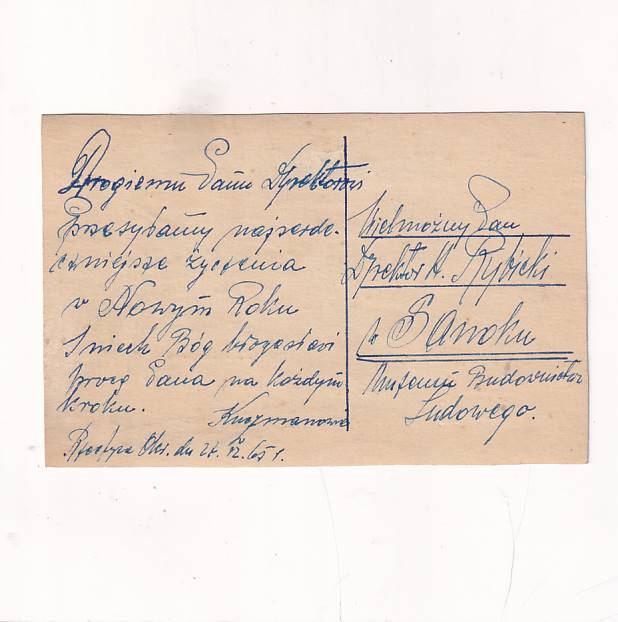 Drogiemu Panu Dyrektorowi
Przesyłamy najserde-
czniejsze życzenia
w Nowym Roku
i niech Bóg błogosławi
pracę Pana na każdym
kroku.
dn 27. XII. 65 r.
Wielmożny Pan
Dyrektor A. Rybicki
w Sanoku
Muzeum Budownictwa
Ludowego.